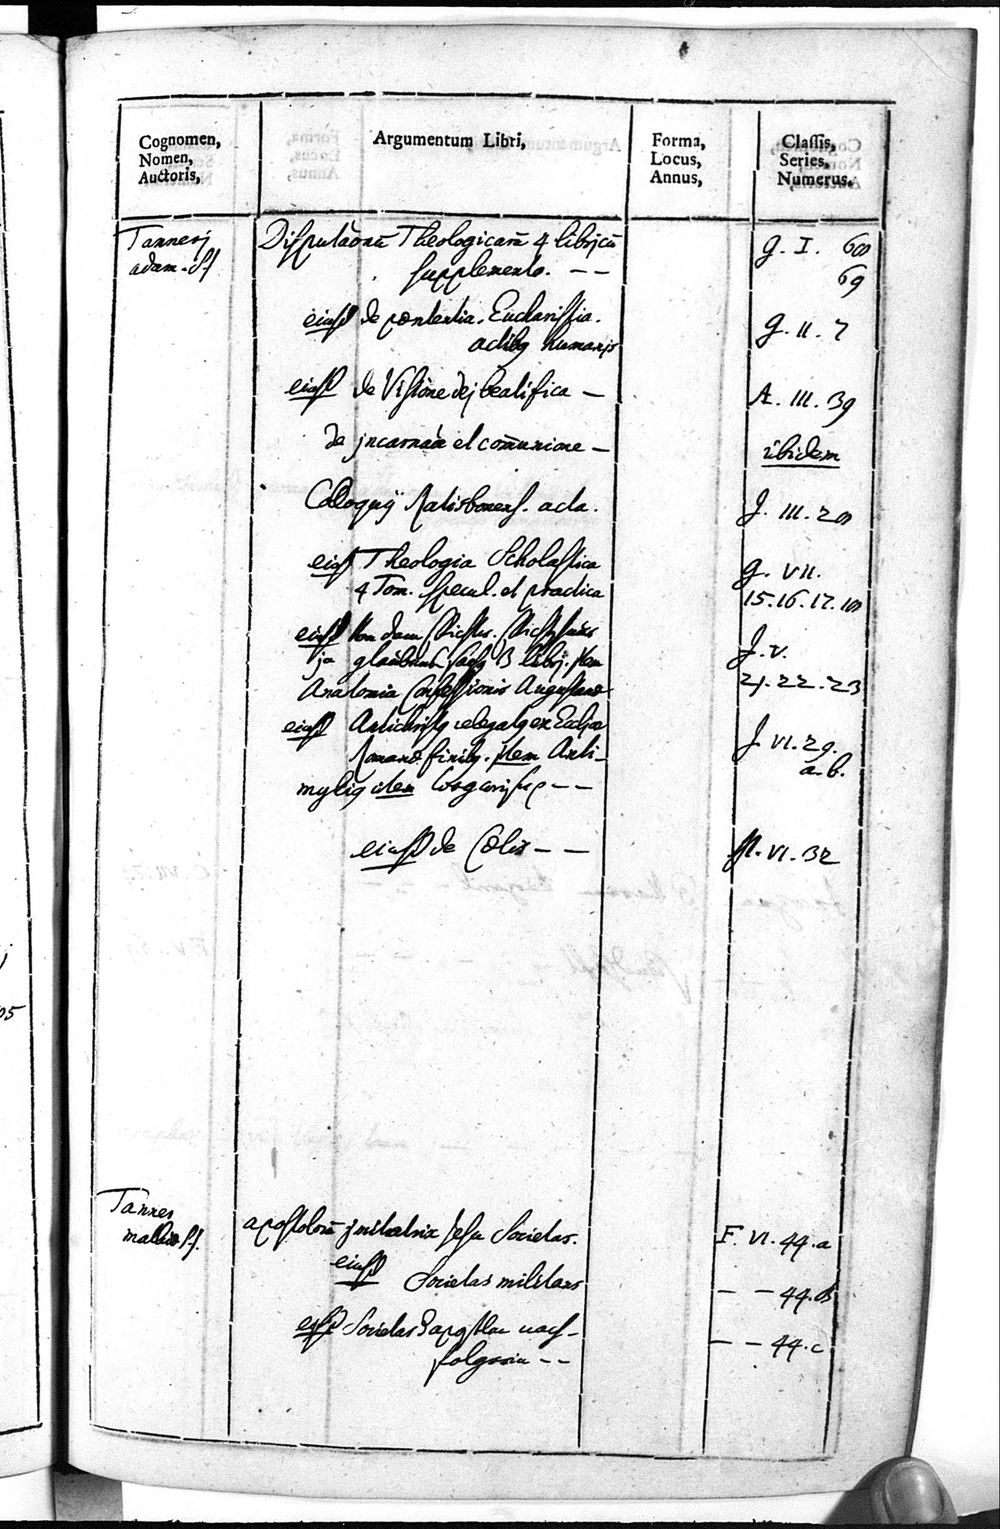 Cognomen,
Nomen,
Auctoris,
Argumentum Libri,
Forma,
Locus,
Annus,
Classis,
Series,
Numerus.
Tannerj
adam. S.J.
Disputãonũ Theologicarũ 4 librj cũ
supplemento. — —
g. I. 68
69
eiusd de pœnitentia. Eucharistia.
actibq humanis
g. II. 7
eiusd de Visione dej beatifica —
A. III. 39
de jncarnãoe et com̃unione —
ibidem
Colloquij Ratisbonens. acta.
J. III. 28
eiusd Theologia Scholastica
4 Tom. specul. et practica
g. VII.
15. 16. 17. 18
eiusd Von dem
in 3 librj. jtem
Anatomia Confessionis Augustanæ
J. V.
21. 22. 23
eiusd Antichristq relegatq ex Ecclæ
Romanæ finibq. jtem Anti-
myliq item — —
J. VI. 29.
a. b.
eiusd de Cœlis — —
VI. 32
Tanner
mathiæ S.J.
apostolorũ jmitatrix Jesu Societas.
F. VI. 44. a
eiusd Societas militans
— — 44. b
eiusd Societas Apostlen nach-
— —
— — 44. c